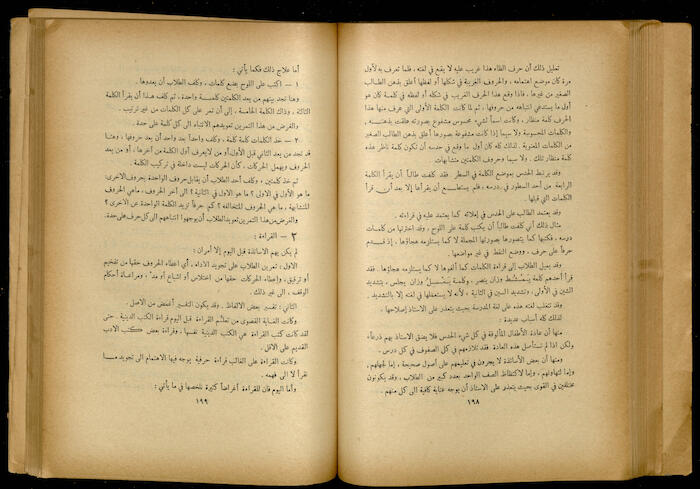 تعليل ذلك أن حرف الظاء هذا غريب عليه لا يقع في لغته، فلما تعرف به لأول
مرة كان موضع اهتمامه. والحروف الغريبة في شكلها أو لفظها أعلق بذهن الطالب
الصغير من غيرها. فاذا وقع هذا الحرف الغريب في شكله أو لفظه في كلمة كان هو
أول ما يستدعي انتباهه من حروفها. ثم لما كانت الكلمة الأولى التي عرف منها هذا
الحرف كلمة منظار، وكانت اسماً لشيء محسوس مشفوع بصورته علقت بذهنه،
والكلمات المحسوسة ولا سيما إذا كانت مشفوعة بصورها أعلق بذهن الطالب الصغير
من الكلمات المعنوية. لذلك كله كان أول ما وقع في حدسه أن تكون كلمة ناظر هذه
كلمة منظار تلك. ولا سيما وحروف الكلمتين متشابهات.
وقد يرتبط الحدس بموضع الكلمة في السطر. فقد كلفت طالباً أن يقرأ الكلمة
الرابعة من أحد السطور في درسه، فلم يستطع أن يقرأها إلا بعد أن قرأ
الكلمات التي قبلها.
وقد يعتمد الطالب على الحدس في إملائه كما يعتمد عليه في قراءته.
مثال ذلك أني كلفت طالباً أن يكتب كلمة على اللوح، وقد اخترتها من كلمات
درسه، فكتبها كما يتصورها بصورتها المجملة لا كما يستلزمه هجاؤها، إذ قدم
حرفاً على حرف، ووضع النقط في غير مواضعها.
وقد يميل الطلاب إلى قراءة الكلمات كما ألفوها لا كما يستلزمه هجاؤها. فقد
قرأ أحدهم كلمة
الشين في الأولى، وتشديد السين في الثانية، لأنه لا يستعملها في لغته إلا بالتشديد.
وقد تتغلب لغته هذه على لغة المدرسة بحيث يتعذر على الاستاذ إصلاحها.
لذلك كله أسباب عديدة:
منها أن عادة الأطفال المألوفة في كل شيء الحدس فلا يضق الاستاذ بهم ذرعاً،
ولكن اذا لم نستأصل هذه العادة فقد تلازمهم في كل الصفوف في كل درس.
ومنها أن بعض الأساتذة لا يجرون في تعليمهم على أصول صحيحة، إما لجهلهم،
وإما لتهاونهم، وإما لاكتظاظ الصف الواحد بعدد كبير من الطلاب، وقد يكونون
مختلفين في القوى بحيث يتعذر على الاستاذ أن يوجه عناية كافية الى كل منهم.
١٩٨
أما علاج ذلك فكما يأتي:
١ — اكتب على اللوح بضع كلمات، وكلف الطلاب أن يعدوها.
وهنا تجد بينهم من يعد الكلمتين كلمة واحدة، ثم كلف هذا أن يقرأ الكلمة
الثالثة، وذاك الكلمة الخامسة، إلى أن تمر على كل الكلمات من غير ترتيب.
والغرض من هذا التمرين تعويدهم الانتباه الى كل كلمة على حدة.
٢ — خذ الكلمات كلمة كلمة، وكلف واحداً بعد واحد أن يعد حروفها، وهنا
قد تجد من يعد الثاني قبل الأول أو من لا يعرف أول الكلمة من آخرها، أو من يعد
الحروف ويهمل الحركات، كأن الحركات ليست داخلة في تركيب الكلمة.
ثم خذ كلمتين، وكلف أحد الطلاب أن يقابل حروف الواحدة بحروف الاخرى:
ما هو الأول في الاولى؟ ما هو الاول في الثانية؟ الى آخر الحروف، ما هي الحروف
المتشابهة، ما هي الحروف المتخالفة؟ كم حرفاً تزيد الكلمة الواحدة عن الأخرى؟
والغرض من هذا التمرين تعويد الطلاب أن يوجهوا انتباههم الى كل حرف على حدة.
٢ — القراءة:
لم يكن يهم الاساتذة قبل اليوم إلا أمران:
الاول: تمرين الطلاب على تجويد الاداء، أي اعطاء الحروف حقها من تفخيم
أو ترقيق، وإعطاء الحركات حقها من اختلاس أو اشباع أو مد، ومراعاة أحكام
الوقف، الى غير ذلك.
الثاني: تفسير بعض الالفاظ. وقد يكون التفسير أغمض من الاصل.
وكانت الغاية القصوى من تعلم القراءة قبل اليوم قراءة الكتب الدينية. حتى
لقد كانت كتب القراءة هي الكتب الدينية نفسها، وقراءة بعض كتب الادب
القديم على الاقل.
وكانت القراءة على الغالب قراءة حرفية يوجه فيها الاهتمام الى تجويد ما
نقرأ لا الى فهمه.
وأما اليوم فان للقراءة أغراضاً كثيرة نلخصها في ما يأتي:
١٩٩